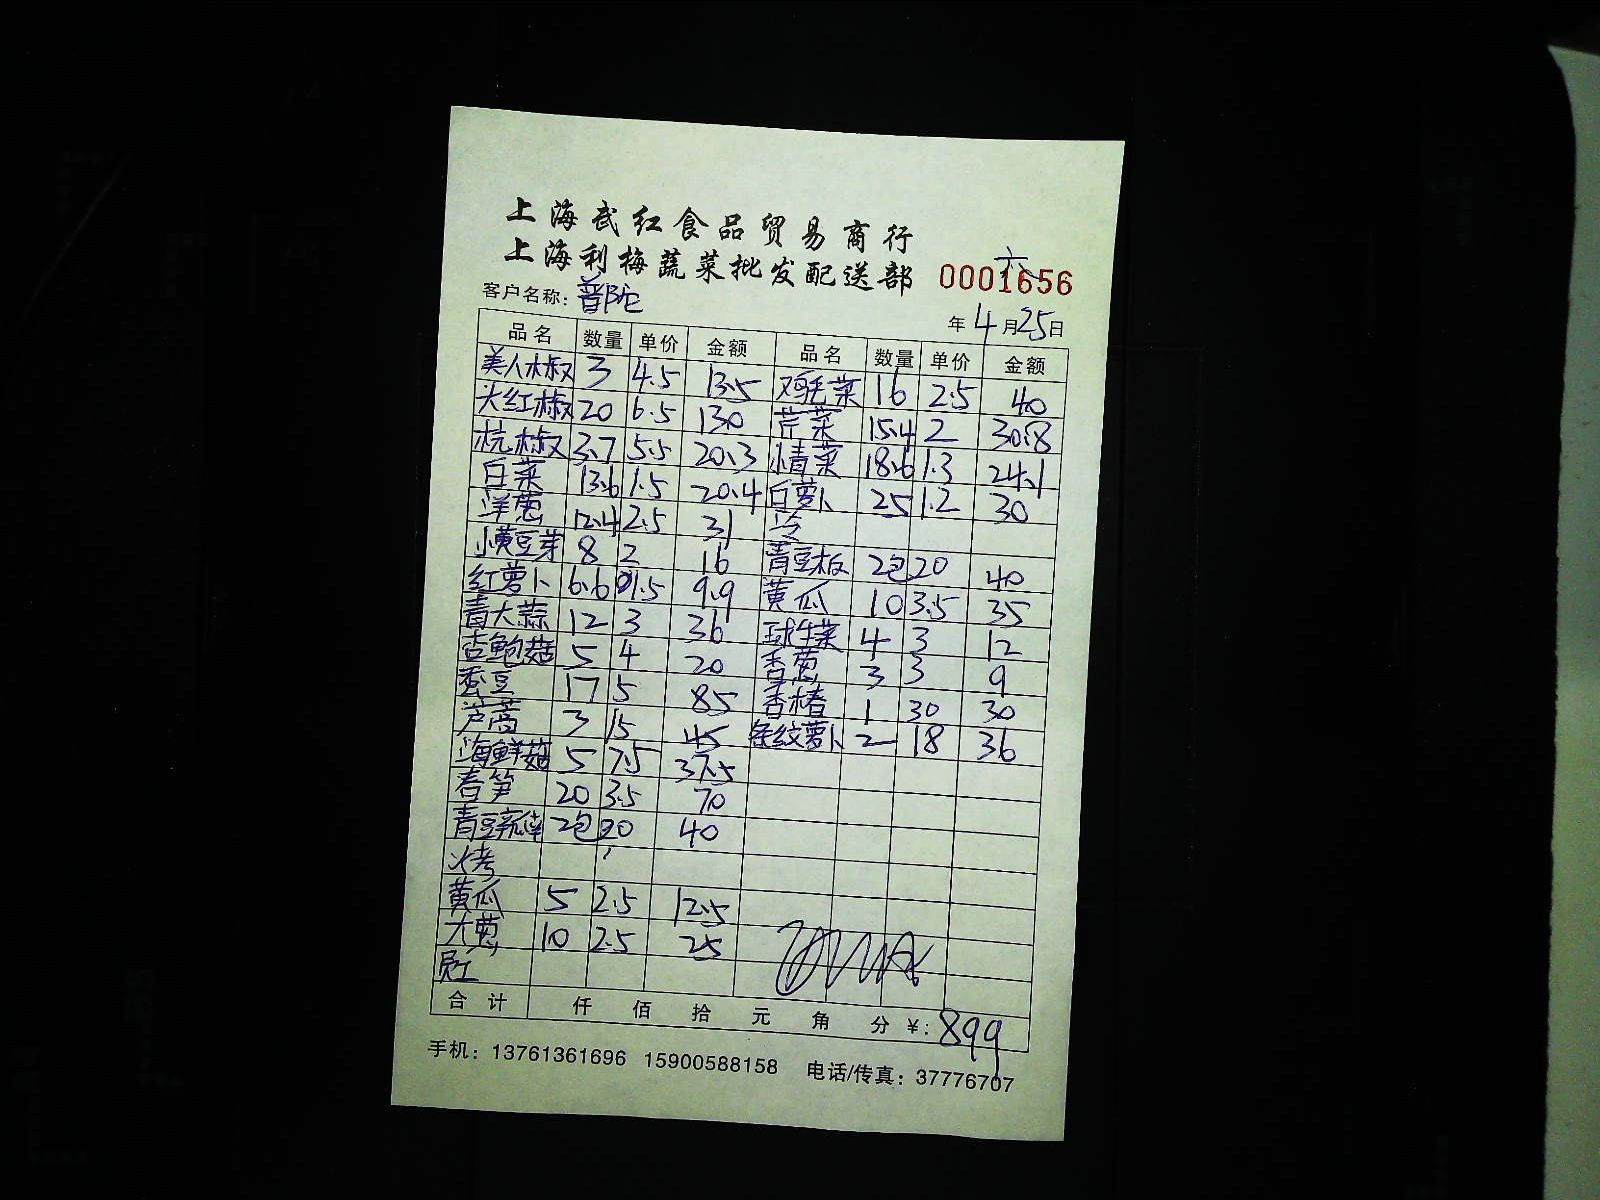 上海武红食品贸易商行
上海利梅蔬菜批发配送部 0001656
六
客户名称：普陀 年4月25日
品名 数量 单价 金额 品名 数量 单价 金额
美人椒 3 4.5 13.5 鸡毛菜 16 2.5 40
大红椒 20 6.5 130 芹菜 15.4 2 30.8
杭椒 3.7 5.5 20.3 青菜 18.6 1.3 24.1
白菜 13.6 1.5 20.4 白萝卜 25 1.2 30
洋葱 12.4 2.5 31 冷
小黄豆芽 8 2 16 青豆板 2包 20 40
红萝卜 6.6 1.5 9.9 黄瓜 10 3.5 35
青大蒜 12 3 36 球生菜 4 3 12
杏鲍菇 5 4 20 香葱 3 3 9
蚕豆 17 5 85 香椿 1 30 30
芦蒿 3 15 45 条纹萝卜 2 18 36
海鲜菇 5 7.5 37.5
春笋 20 3.5 70
青豆瓣 2包 20 40
火考
黄瓜 5 2.5 12.5
大葱 10 2.5 25
合计 仟 佰 拾 元 角 分 ￥：899
手机：13761361696 15900588158 电话/传真：37776707